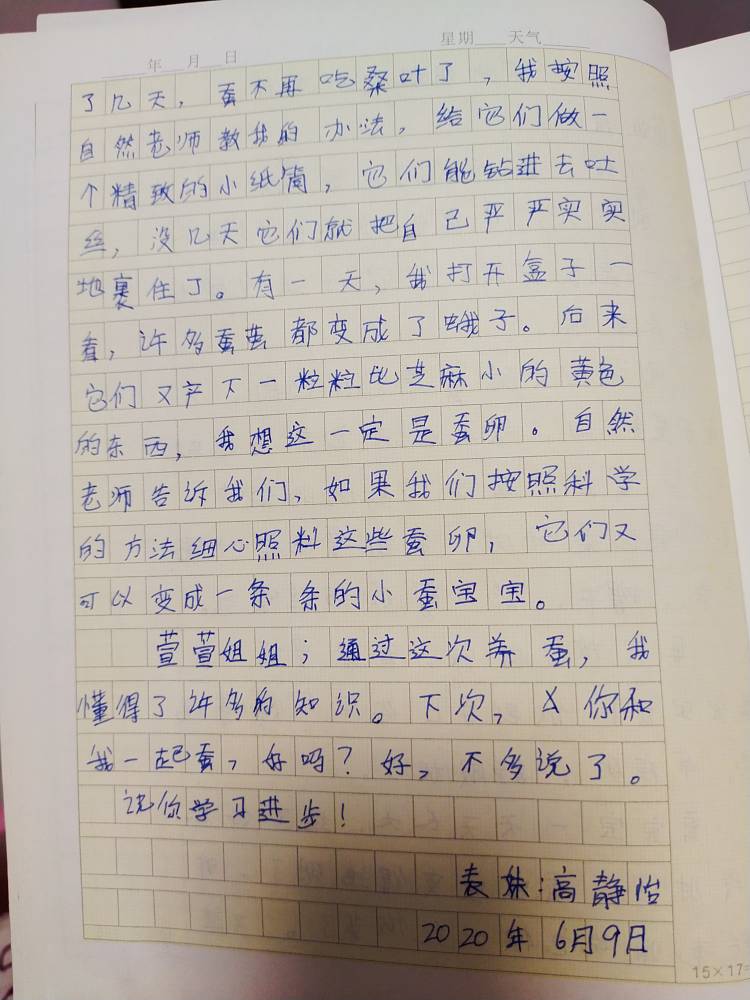 年 月 日 星期 天气
了几天，蚕不再吃桑叶了，我按照
自然老师教我的办法，给它们做一
个精致的小纸筒，它们能钻进去吐
丝，没几天它们就把自己严严实实
地裹住了。有一天，我打开盒子一
看，许多蚕茧都变成了蛾子。后来
它们又产下一粒粒比芝麻小的黄色
的东西，我想这一定是蚕卵。自然
老师告诉我们，如果我们按照科学
的方法细心照料这些蚕卵，它们又
可以变成一条条的小蚕宝宝。
萱萱姐姐；通过这次养蚕，我
懂得了许多的知识。下次，你和
我一起蚕，好吗？好，不多说了。
祝你学习进步！
表妹：高静怡
2020年6月9日
15×17=